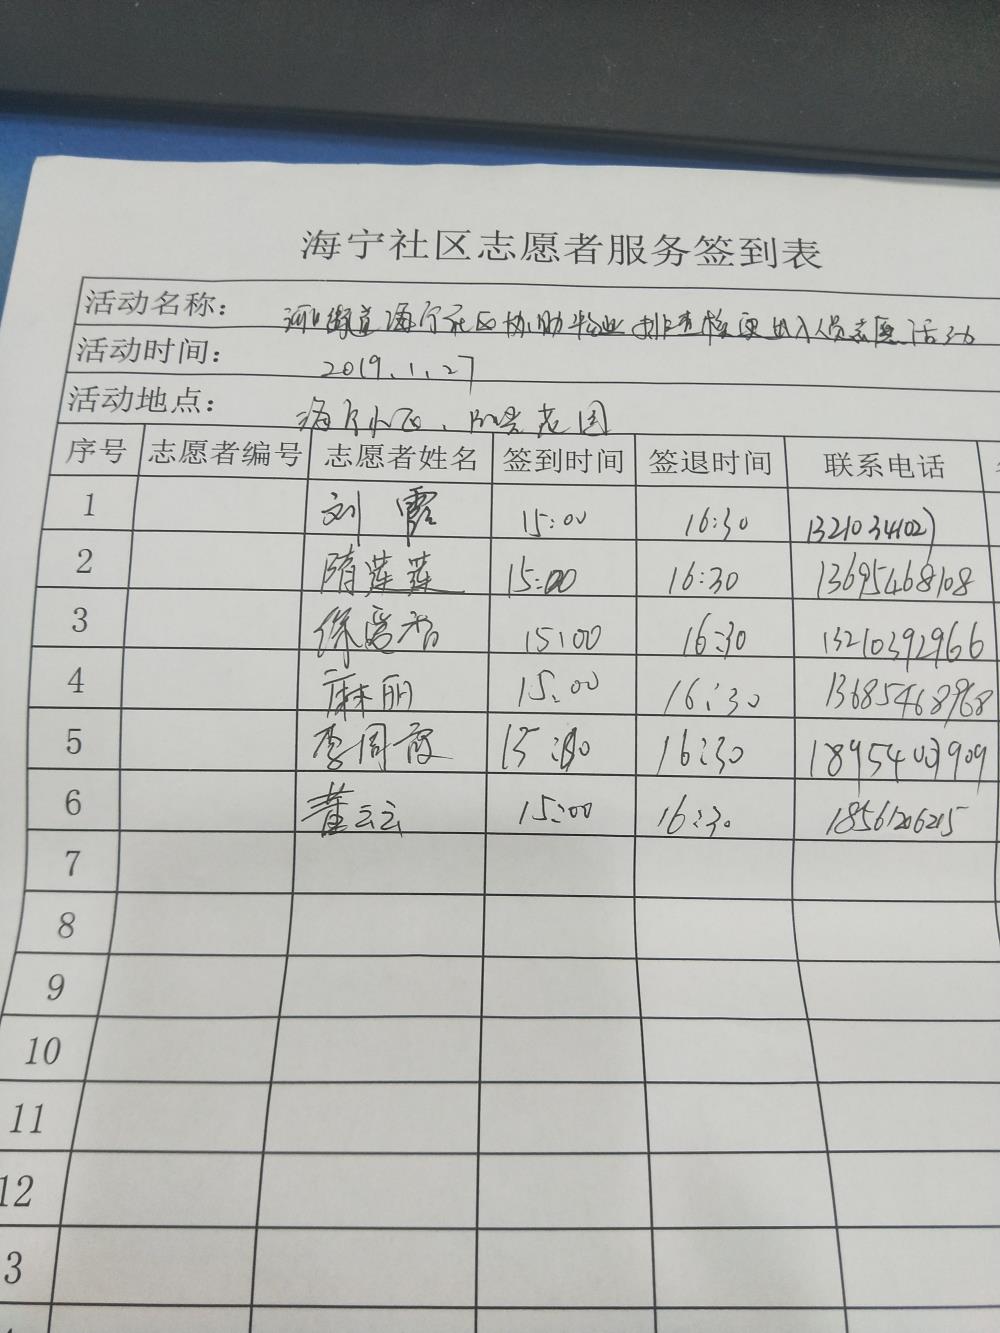 海宁社区志愿者服务签到表
活动名称： 街道海宁社区协助物业排查 出入人员志愿活动
活动时间： 2019.1.27
活动地点： 海宁小区、 花园
序号 志愿者编号 志愿者姓名 签到时间 签退时间 联系电话
1 刘霞 15:00 16:30
2 隋莲莲 15:00 16:30 13695468108
3 徐 15:00 16:30 13210392966
4 麻丽 15:00 16:30 13685468968
5 李周霞 15:00 16:30 18954403909
6 董云云 15:00 16:30 18561206215
7
8
9
10
11
12
3